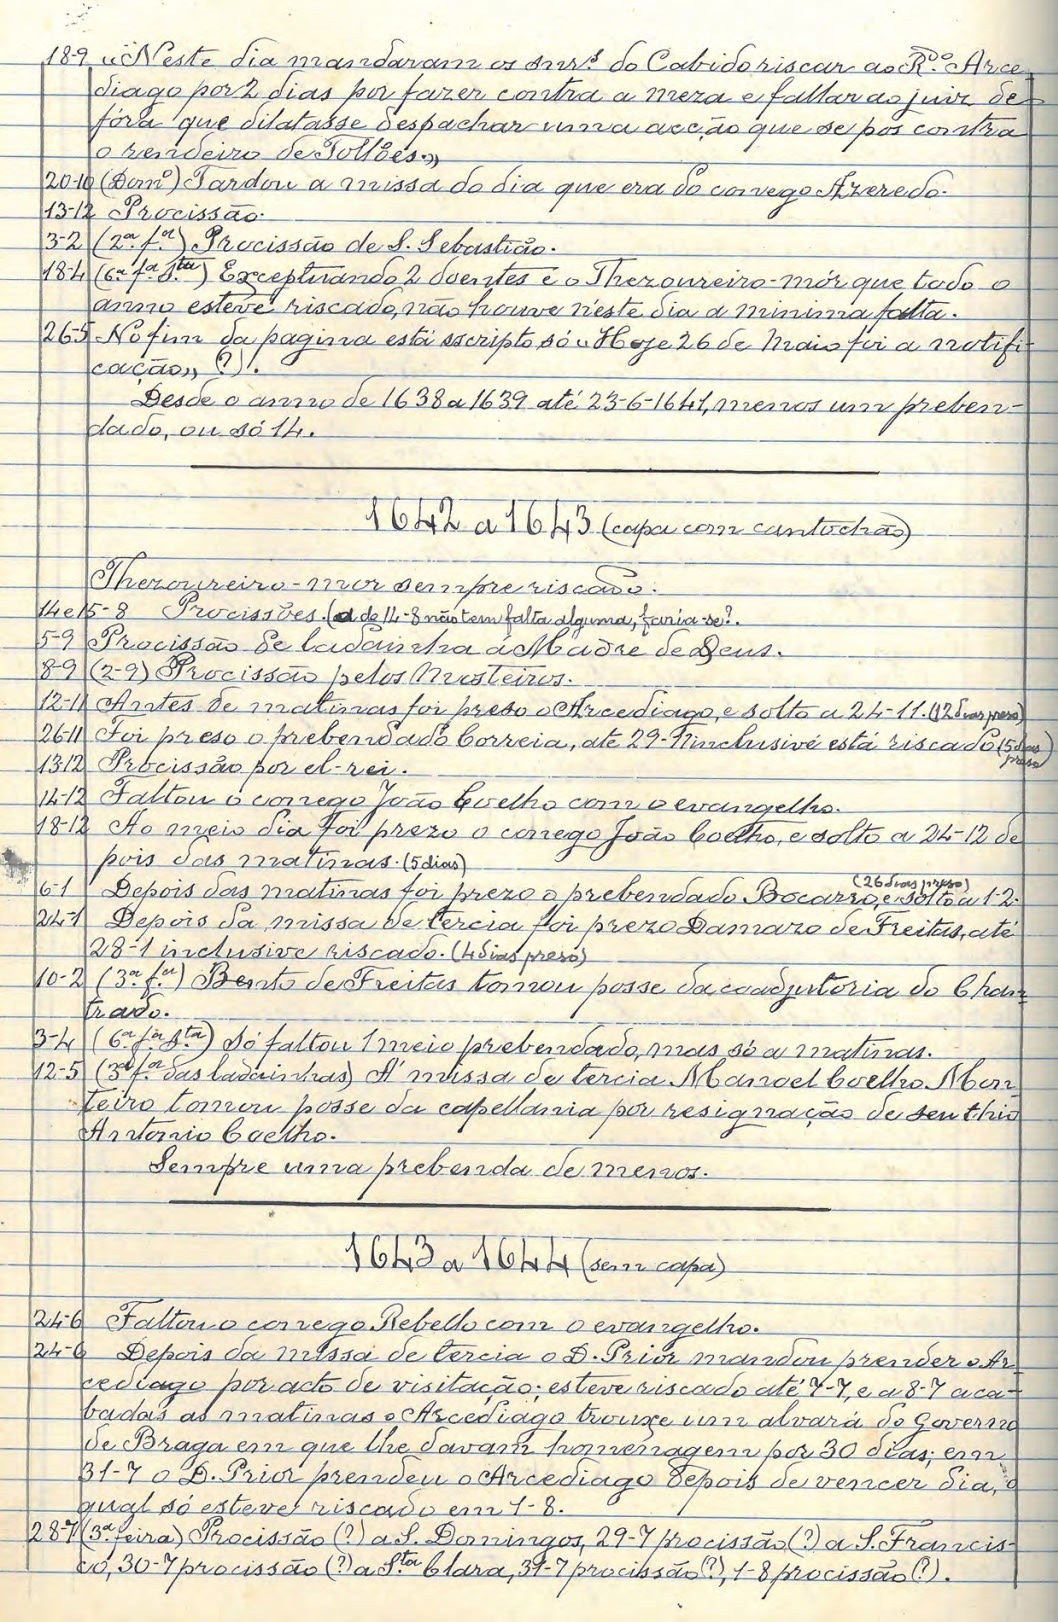 18-9 «Neste dia mandaram os snrs. do Cabido riscar ao Rdo. Arce-
diago por 2 dias por fazer contra a meza e fallar ao juiz de
fóra que dilatasse despachar uma acção que se pos contra
o rendeiro de Tollões.»
20-10 (Domo) Tardou a missa do dia que era do conego Azeredo.
13-12 Procissão.
3-2 (2ª fª) Procissão de S. Sebastião.
18-4 (6ª fª Sta) Exceptuando 2 doentes e o Thezoureiro-mór que todo o
anno esteve riscado, não houve n'este dia a minima falta.
26-5 No fim da pagina está escripto só «Hoje 26 de Maio foi a notifi-
cação» (?).
Desde o anno de 1638 a 1639 até 23-6-1641, menos um preben-
dado, ou só 14.
1642 a 1643 (capa com cantochão)
Thezoureiro-mor sempre riscado.
14 e 15-8 Procissões. (a de 14-8 não tem falta alguma, faria-se?.
5-9 Procissão de ladainha á Madre de Deus.
8-9 (2-9) Procissão pelos Mosteiros.
12-11 Antes de matinas foi preso o Arcediago, e solto a 24-11. (12 dias preso)
26-11 Foi preso o prebendado Correia, até 29-11 inclusivé está riscado (5 dias
preso)
13-12 Procissão por el-rei.
14-12 Faltou o conego João Coelho com o evangelho.
18-12 Ao meio dia foi prezo o conego João Coelho, e solto a 24-12 de
pois das matinas. (5 dias)
6-1 Depois das matinas foi prezo o prebendado Bocarro, e solto a 1-2. (26 dias preso)
24-1 Depois da missa de tercia foi prezo Damazo de Freitas, até
28-1 inclusive riscado. (4 dias preso)
10-2 (3ª fª) Bento de Freitas tomou posse da coadjutoria do Chan-
trado.
3-4 (6ª fª Sta) Só faltou 1 meio prebendado, mas só a matinas.
12-5 (3ª fª das ladainhas) Á missa de tercia Manoel Coelho Mon-
teiro tomou posse da capellania por resignação de seu thio
Antonio Coelho.
Sempre uma prebenda de menos.
1643 a 1644 (sem capa)
24-6 Faltou o conego Rebello com o evangelho.
24-6 Depois da missa de tercia o D. Prior mandou prender o Ar-
cediago por acto de visitação; esteve riscado até 7-7, e a 8-7 aca-
badas as matinas o Arcediago trouxe um alvará do Governo
de Braga em que lhe davam homenagem por 30 dias; em
31-7 o D. Prior prendeu o Arcediago depois de vencer dia, o
qual só esteve riscado em 1-8.
28-7 (3ª feira) Procissão (?) a S. Domingos, 29-7 procissão (?) a S. Francis-
co, 30-7 procissão (?) a Sta Clara, 31-7 procissão (?), 1-8 procissão (?).